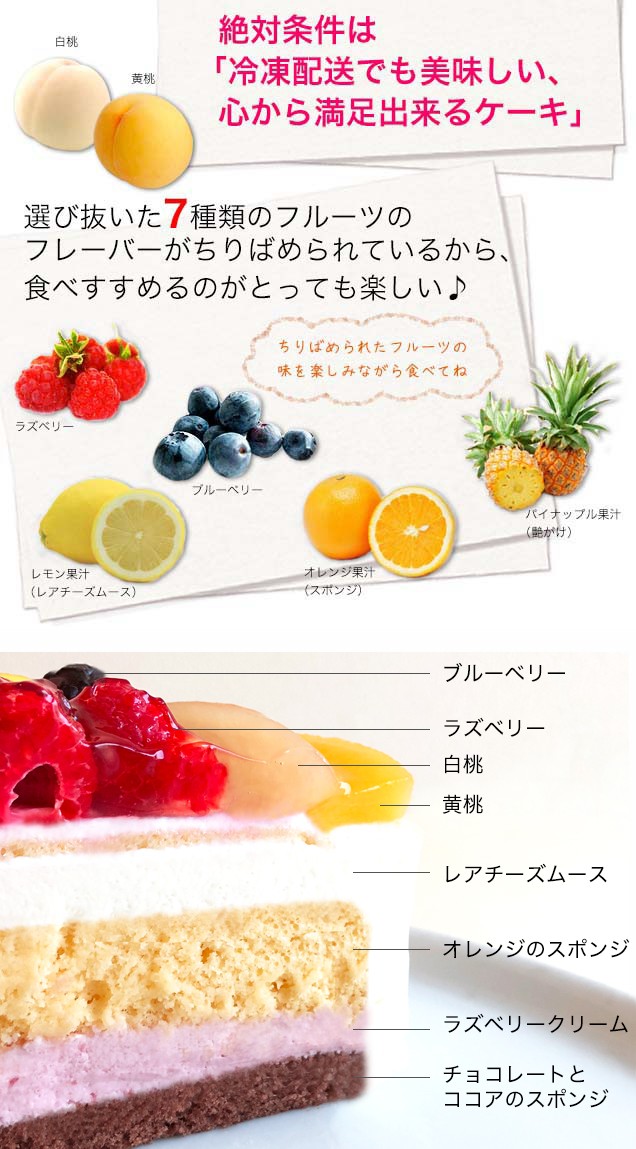 絶対条件は
「冷凍配送でも美味しい、
心から満足出来るケーキ」
白桃
黄桃
選び抜いた7種類のフルーツの
フレーバーがちりばめられているから、
食べすすめるのがとっても楽しい♪
ちりばめられたフルーツの
味を楽しみながら食べてね
ラズベリー
ブルーベリー
パイナップル果汁
（艶がけ）
レモン果汁
（レアチーズムース）
オレンジ果汁
（スポンジ）
ブルーベリー
ラズベリー
白桃
黄桃
レアチーズムース
オレンジのスポンジ
ラズベリークリーム
チョコレートと
ココアのスポンジ